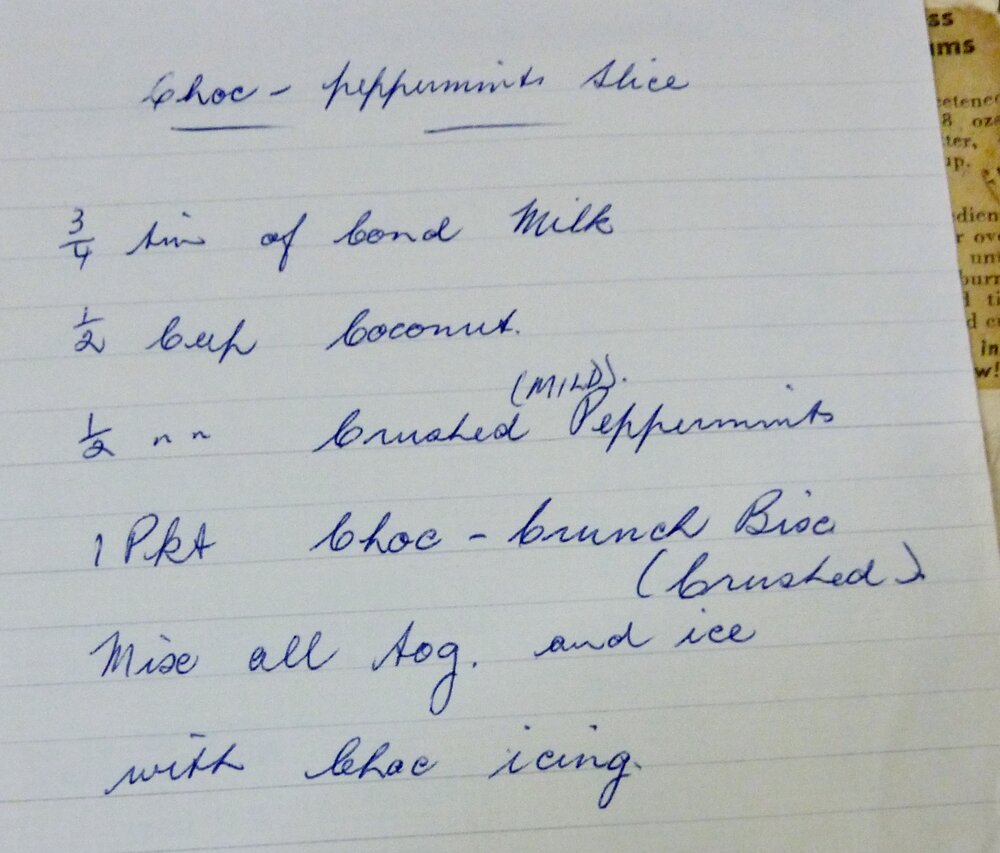 Choc - peppermints slice
3/4 tin of Cond Milk
1/2 Cup Coconut.
(MILD).
1/2 " " Crushed Peppermints
1 Pkt Choc - Crunch Bisc
(Crushed).
Mix all tog. and ice
with Choc icing.
ss
ms
8 oz
up.
r ov
unt
burn
in
w!